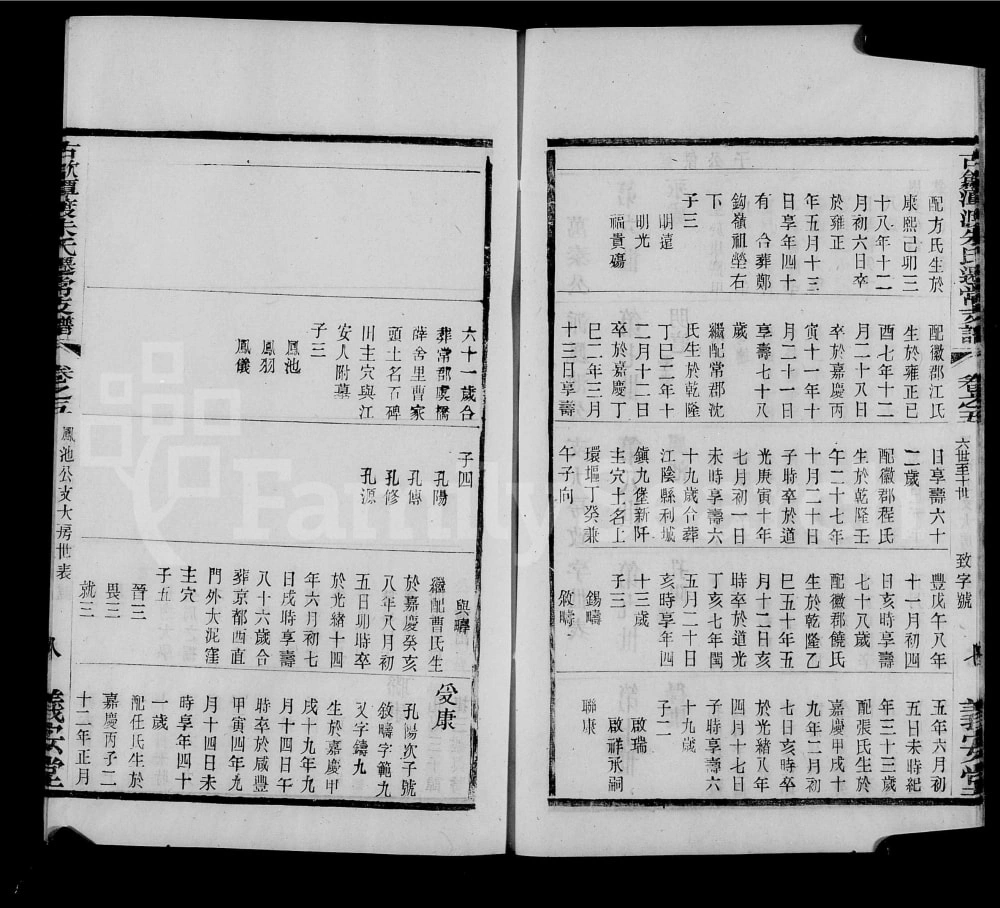 配方氏生於
康熙己卯三
十八年十二
月初六日卒
於雍正
年五月十三
日享年四十
有 合葬鄭
鈎嶺祖塋右
下
子三
明遠
明光
福貴殤
配徽郡江氏
生於雍正己
酉七年十二
月二十八日
卒於嘉慶丙
寅十一年十
月二十一日
享壽七十八
歲
繼配常郡沈
氏生於乾隆
丁巳二年十
二月十二日
卒於嘉慶丁
巳二年三月
十三日享壽
日享壽六十
二歲
配徽郡程氏
生於乾隆壬
午二十七年
十月二十日
子時卒於道
光庚寅十年
七月初一日
未時享壽六
十九歲合葬
江陰縣利城
鎮九堡新阡
主穴土名上
環堰丁癸兼
午子向
豐戊午八年
十一月初四
日亥時享壽
七十八歲
配徽郡饒氏
生於乾隆乙
巳五十年五
月十二日亥
時卒於道光
丁亥七年閏
五月二十日
亥時享年四
十三歲
子三
錫疇
敘疇
五年六月初
五日未時紀
年三十三歲
配張氏生於
嘉慶甲戌十
九年二月初
七日亥時卒
於光緒八年
四月十七日
子時享壽六
十九歲
子二
啟瑞
啟祥承嗣
聯康
六世至十世
致字號
義安堂
六十一歲合
葬常郡虞橋
薛舍里曹家
頭土名石碑
川主穴與江
安人附墓
子三
鳳池
鳳羽
鳳儀
子四
孔陽
孔傳
孔修
孔源
與疇
繼配曹氏生
於嘉慶癸亥
八年八月初
五日卯時卒
於光緒十四
年六月初七
日戌時享壽
八十六歲合
葬京都西直
門外大泥窪
主穴
子五
晉三
畏三
就三
受康
孔陽次子號
敘疇字範九
又字鑄九
生於嘉慶甲
戌十九年九
月十四日午
時卒於咸豐
甲寅四年九
月十四日未
時享年四十
一歲
配任氏生於
嘉慶丙子二
十二年正月
卷之五
鳳池公支大房世表
八
義安堂